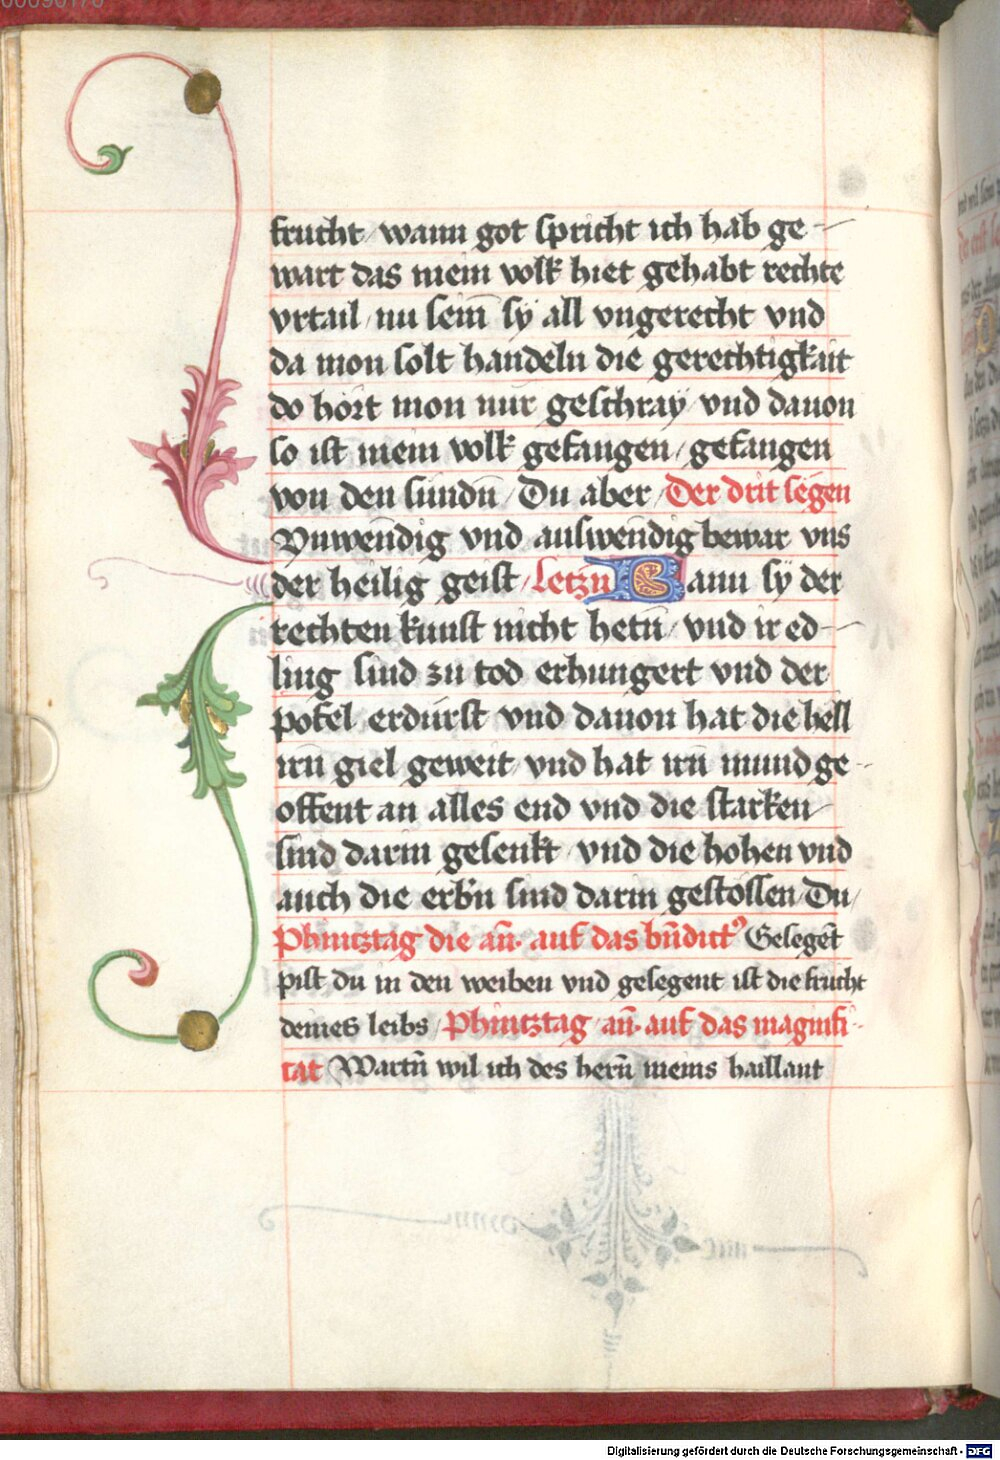 frucht / wann got spricht ich hab ge-
wart das mein volk hiet gehabt rechte
vrtail / nu seın̄ sy all vngerecht vnd
da mon solt handeln die gerechtigkait
do hört mon nŭr geschray vnd dauon
so ist mein volk gefangen / gefangen
von den sundn̄ / Du aber / Der drit segen
Inwen̄dig vnd auswen̄dig bewar vns
der heilig geist / Letzn̄ Wann sy der
rechten kunst nicht hetn̄ / vnd ir ed-
ling sind zu tod erhungert vnd der
pofel erdürst vnd dauon hat die hell
irn̄ giel geweit / vnd hat irn̄ mund ge-
offent an alles end vnd die starken
sind darin gesenkt / vnd die hohen vnd
auch die erb'n sind darin gestossen Du /
Phintztag die an̄. auf das bn̄dict⁹ Gelegen̄t
pist du in den weiben vnd gesegent ist die frucht
deines leibs / Phintztag an̄. auf das magnifi-
cat Wartn̄ wil ich des hern̄ meins haillant
Digitalisierung gefördert durch die Deutsche Forschungsgemeinschaft - DFG